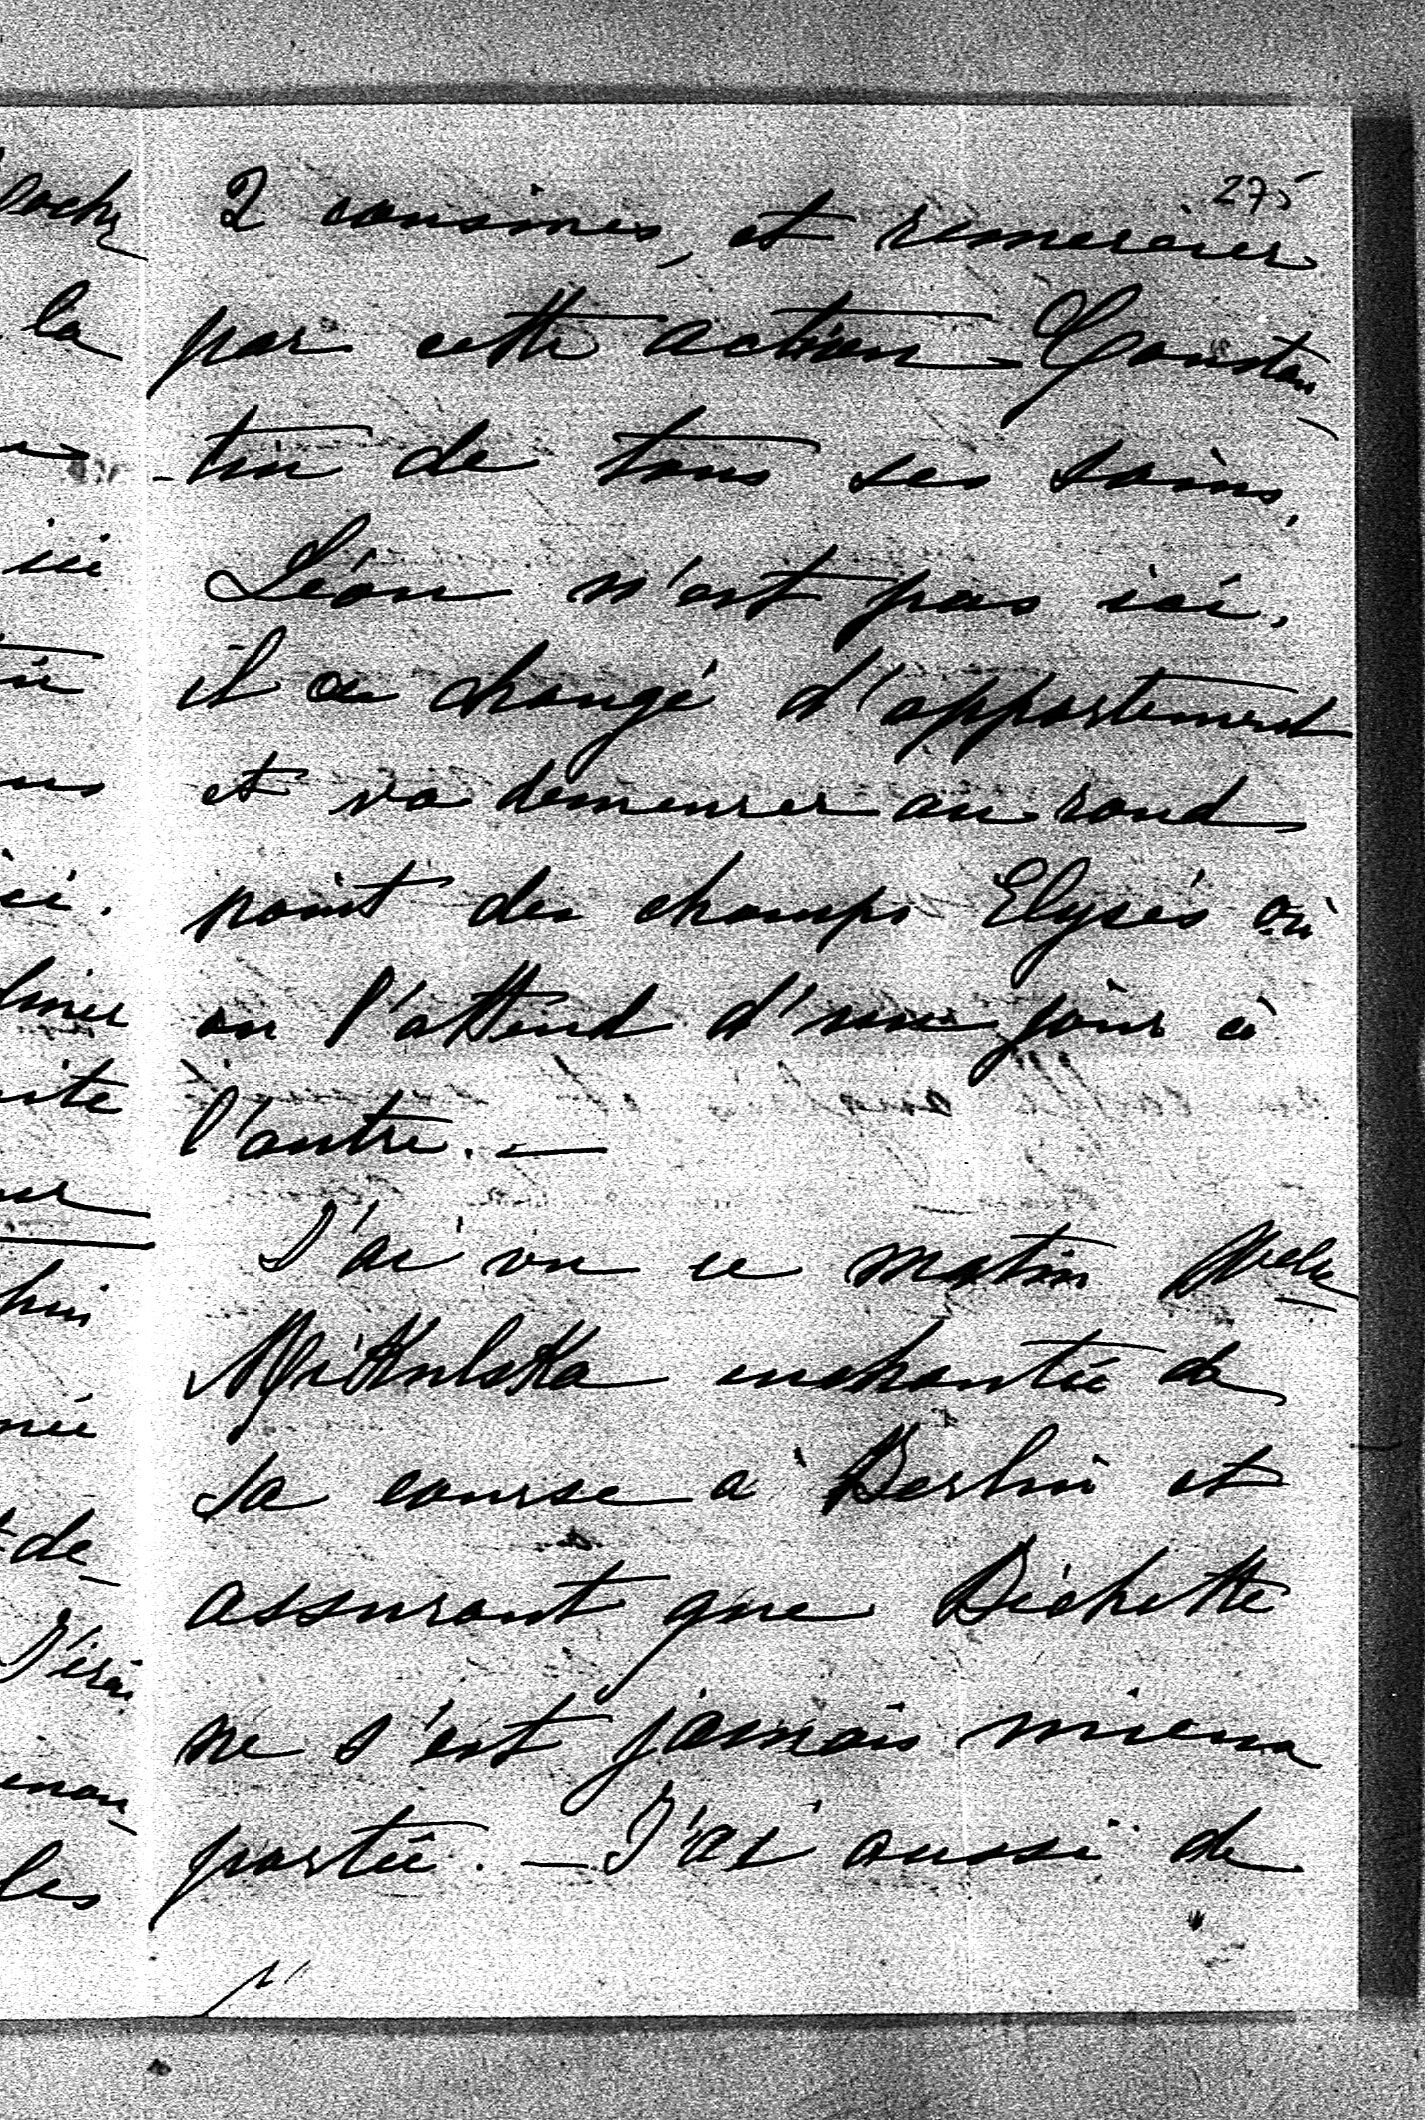 275
2 cousines, et remercier
par cette action Constan
-tin de tous ses soins.
Léon n'est pas ici,
il a changé d'appartement
et va demeurer au rond
point des champs Elysés où
on l'attend d'un jour à
l'autre. —
J'ai vu ce matin Melle
Mikulska enchantée de
sa course à Berlin et
assurant que Bichette
ne s'est jamais mieux
portée. — J'ai aussi de
la
ici
ici.
diner
J'irai
les